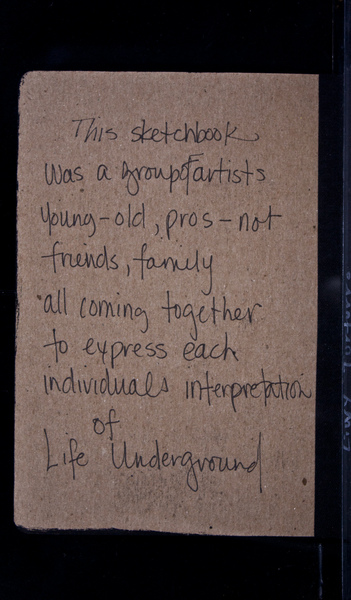 This sketchbook
was a group of artists
young-old, pros-not
friends, family
all coming together
to express each
individuals interpretation
of
Life Underground